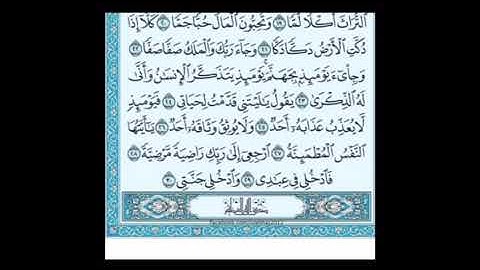 ٱلتُّرَاثَ أَكْلًا لَّمًّا ١٩ وَتُحِبُّونَ ٱلْمَالَ حُبًّا جَمًّا ٢٠ كَلَّآ إِذَا
دُكَّتِ ٱلْأَرْضُ دَكًّا دَكًّا ٢١ وَجَآءَ رَبُّكَ وَٱلْمَلَكُ صَفًّا صَفًّا ٢٢
وَجِاْىٓءَ يَوْمَئِذٍۭ بِجَهَنَّمَ ۚ يَوْمَئِذٍ يَتَذَكَّرُ ٱلْإِنسَٰنُ وَأَنَّىٰ
لَهُ ٱلذِّكْرَىٰ ٢٣ يَقُولُ يَٰلَيْتَنِى قَدَّمْتُ لِحَيَاتِى ٢٤ فَيَوْمَئِذٍ
لَّا يُعَذِّبُ عَذَابَهُۥٓ أَحَدٌ ٢٥ وَلَا يُوثِقُ وَثَاقَهُۥٓ أَحَدٌ ٢٦ يَٰٓأَيَّتُهَا
ٱلنَّفْسُ ٱلْمُطْمَئِنَّةُ ٢٧ ٱرْجِعِىٓ إِلَىٰ رَبِّكِ رَاضِيَةً مَّرْضِيَّةً ٢٨
فَٱدْخُلِى فِى عِبَٰدِى ٢٩ وَٱدْخُلِى جَنَّتِى ٣٠